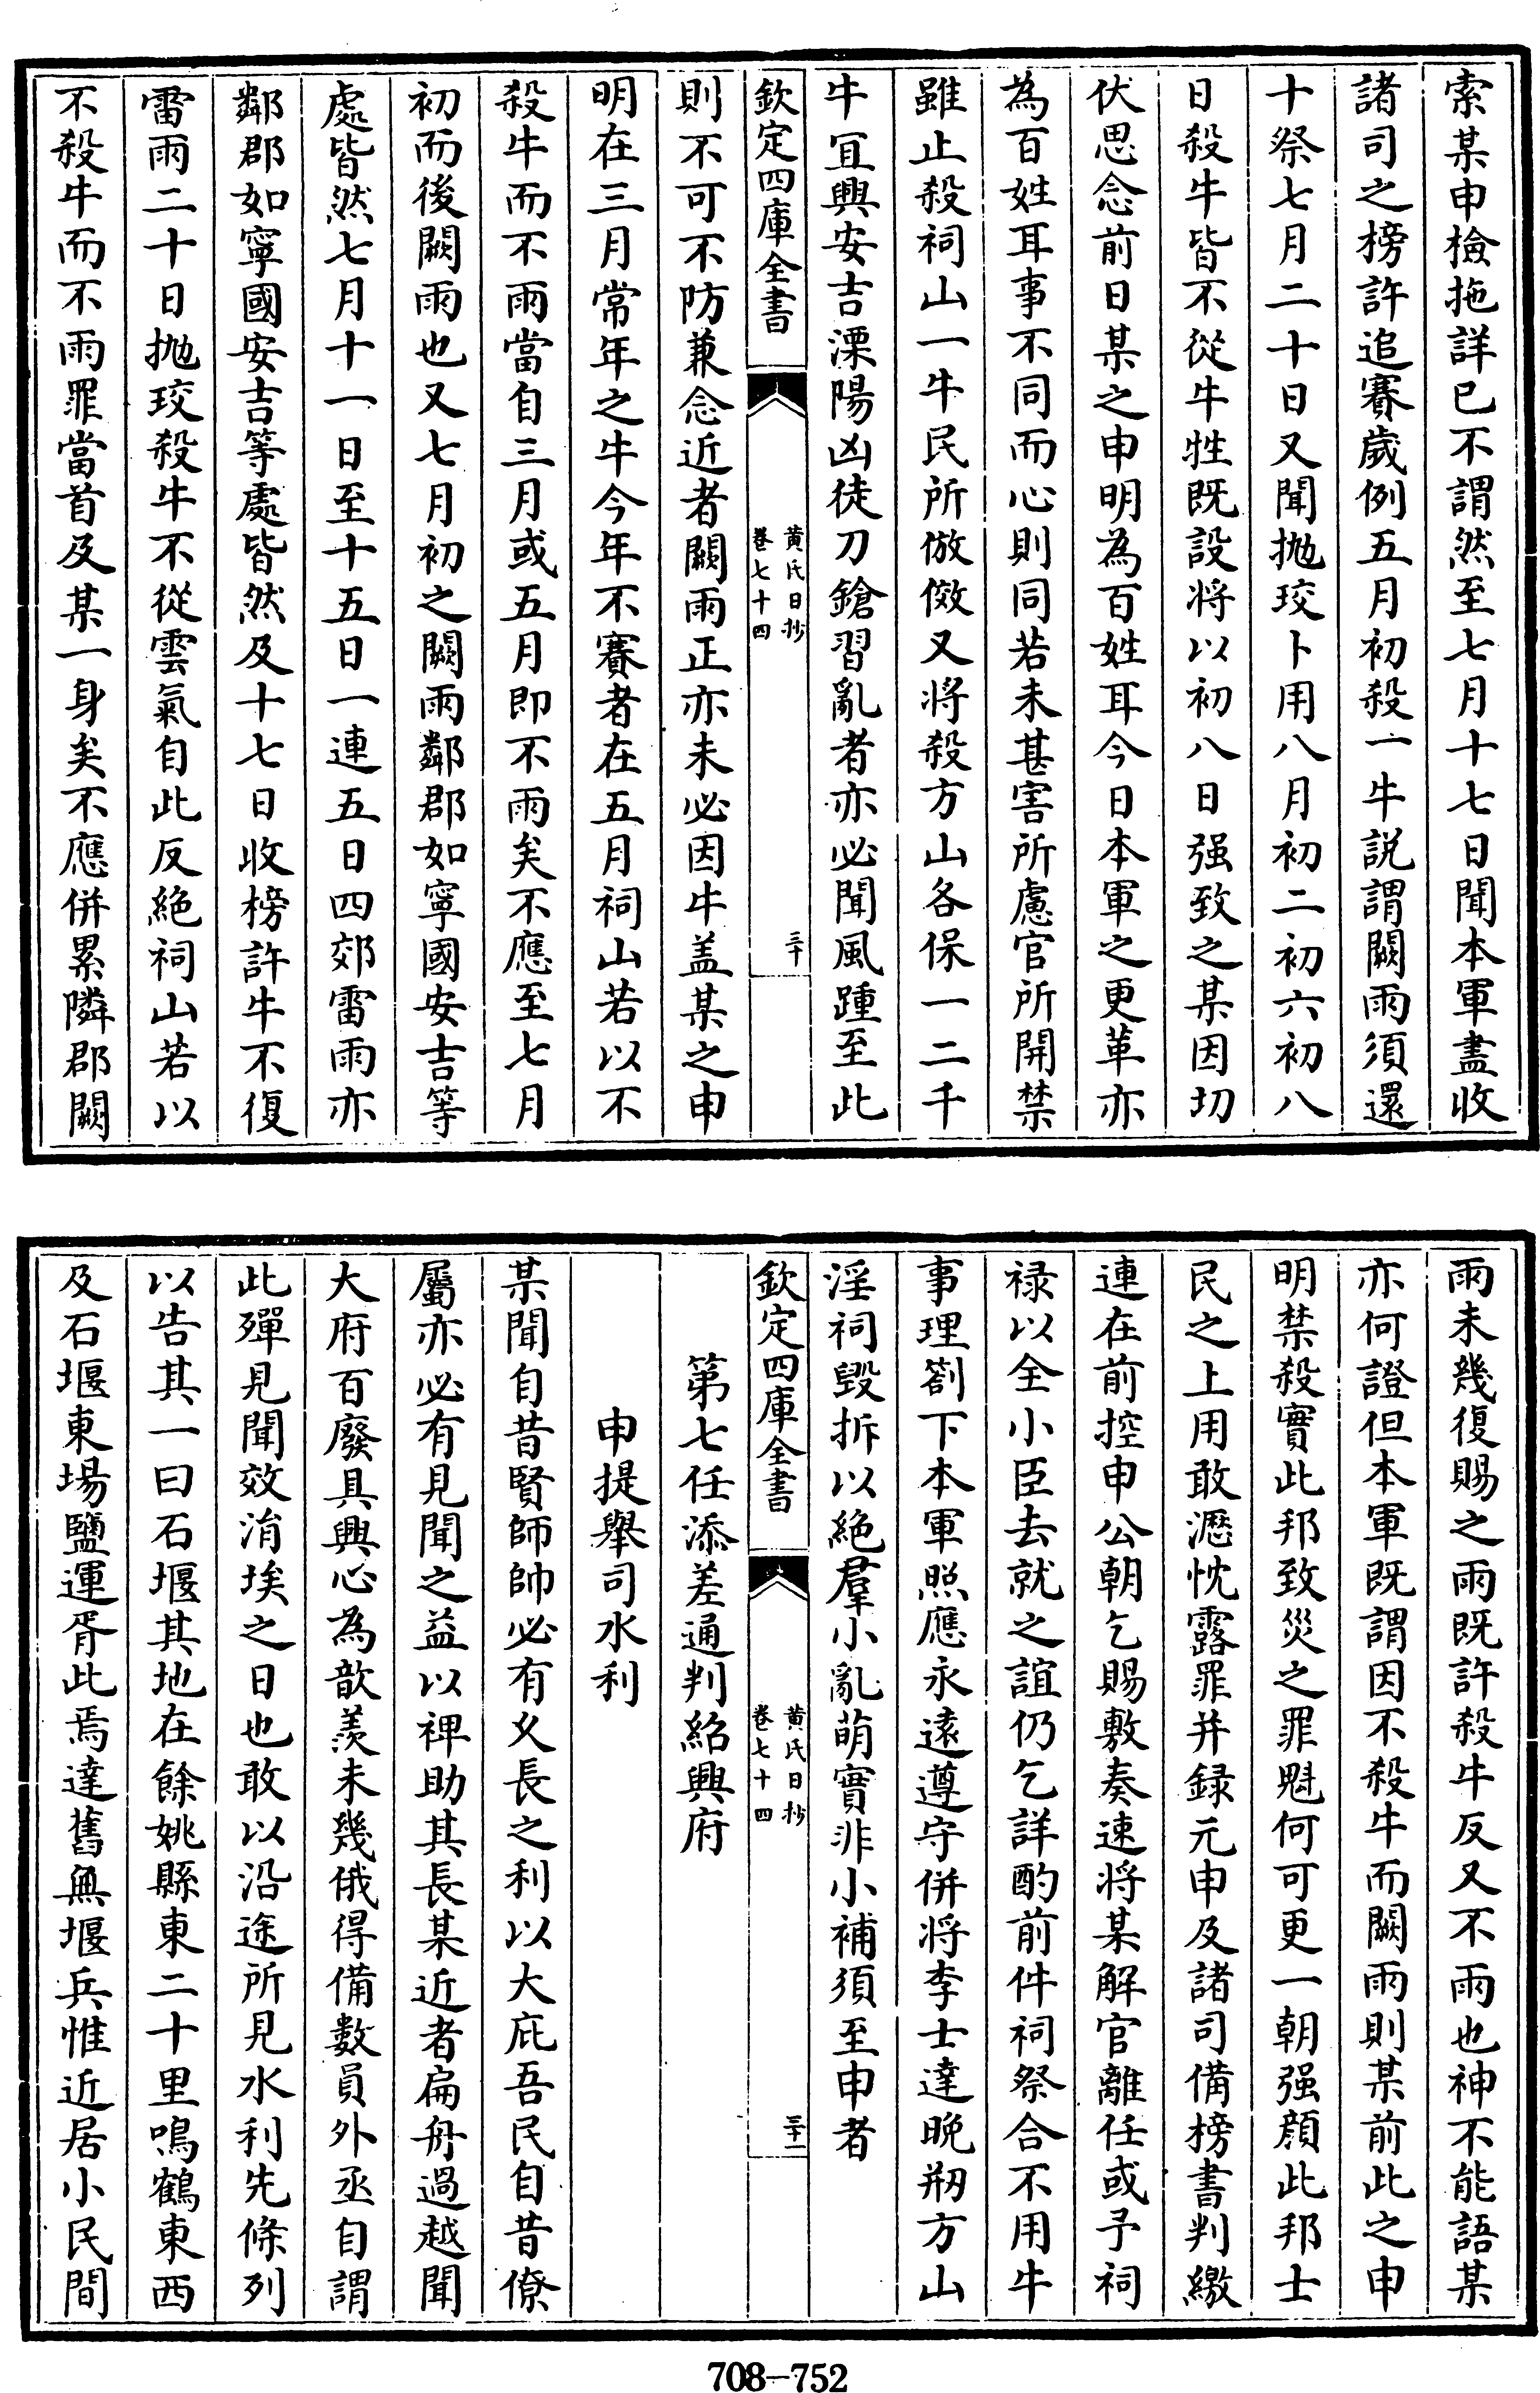 索某申檢拖詳已不謂然至七月十七日聞本軍盡收
諸司之榜許追賽歲例五月初殺一牛説謂闕雨須還
十祭七月二十日又聞抛珓卜用八月初二初六初八
日殺牛皆不從牛牲既設將以初八日强致之某因切
伏思念前日某之申明為百姓耳今日本軍之更革亦
為百姓耳事不同而心則同若未甚害所慮官所開禁
雖止殺祠山一牛民所倣傚又将殺方山各保一二千
牛宜興安吉溧陽凶徒刀鎗習亂者亦必聞風踵至此
欽定四庫全書
黄氏日抄
卷七十四
三十
則不可不防兼念近者闕雨正亦未必因牛盖某之申
明在三月常年之牛今年不賽者在五月祠山若以不
殺牛而不雨當自三月或五月即不雨矣不應至七月
初而後闕雨也又七月初之闕雨鄰郡如寧國安吉等
處皆然七月十一日至十五日一連五日四郊雷雨亦
鄰郡如寧國安吉等處皆然及十七日收榜許牛不復
雷雨二十日抛珓殺牛不從雲氣自此反絶祠山若以
不殺牛而不雨罪當首及某一身矣不應併累隣郡闕
雨未幾復賜之雨既許殺牛反又不雨也神不能語某
亦何證但本軍既謂因不殺牛而闕雨則某前此之申
明禁殺實此邦致災之罪魁何可更一朝强顔此邦士
民之上用敢瀝忱露罪并録元申及諸司備榜書判繳
連在前控申公朝乞賜敷奏速将某解官離任或予祠
禄以全小臣去就之誼仍乞詳酌前件祠祭合不用牛
事理劄下本軍照應永遠遵守併将李士達晚剏方山
淫祠毀拆以絶羣小亂萌實非小補須至申者
欽定四庫全書
黄氏日抄
卷七十四
三十一
第七任添差通判紹興府
申提舉司水利
某聞自昔賢師帥必有乆長之利以大庇吾民自昔僚
屬亦必有見聞之益以裨助其長某近者扁舟過越聞
大府百廢具興心為歆羡未幾俄得備數員外丞自謂
此殫見聞效涓埃之日也敢以沿途所見水利先條列
以告其一曰石堰其地在餘姚縣東二十里鳴鶴東西
及石堰東場鹽運胥此焉達舊無堰兵惟近居小民間
708—752